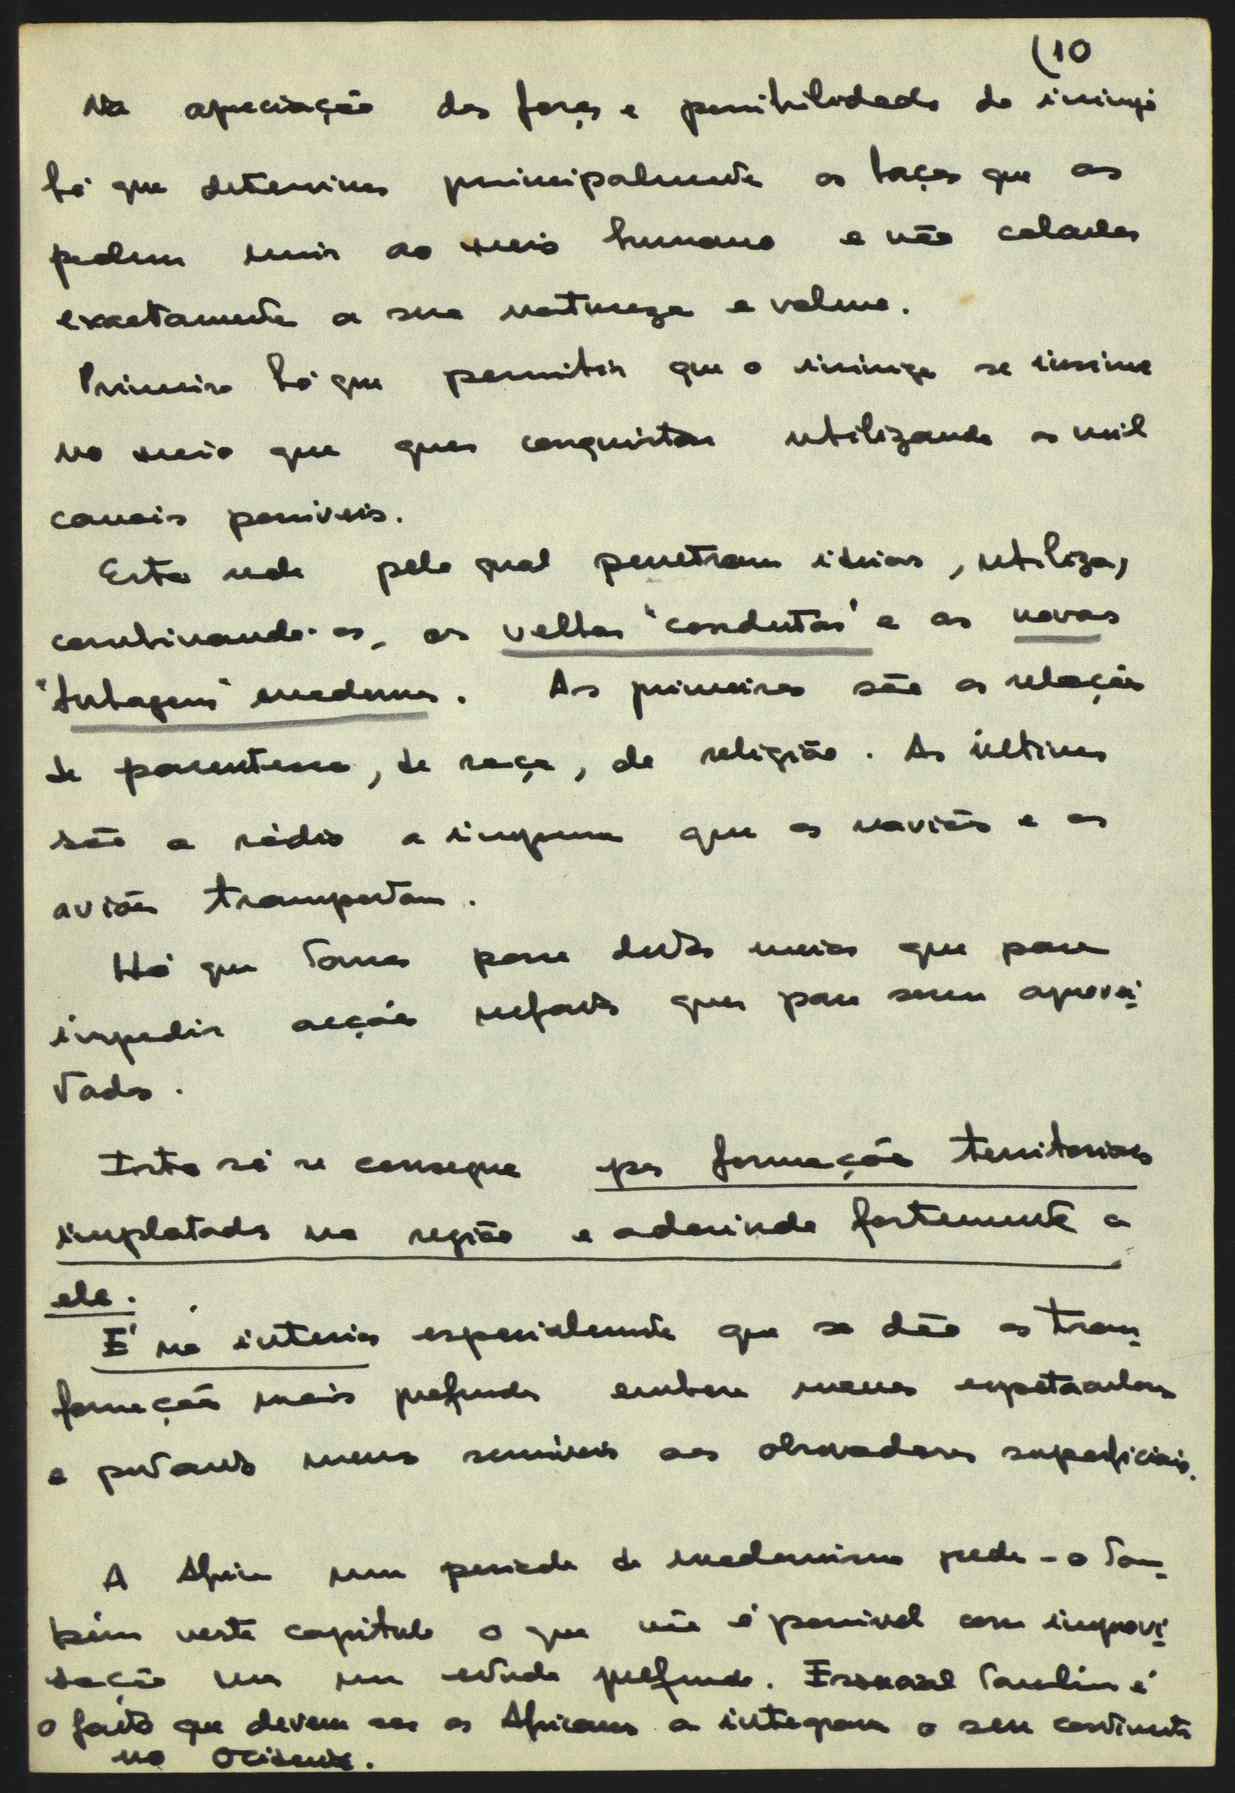 (10
Na apreciação das forças e possibilidades do inimigo
há que determinar principalmente os laços que as
podem unir ao meio humano e não calcular
exactamente a sua natureza e volume.
Primeiro há que permitir que o inimigo se insinue
no meio que quer conquistar utilizando os mil
canais possíveis.
Esta rede pela qual penetram ideias, utiliza,
combinando-as, as velhas "condutas" e as novas
"tubagens" modernas. As primeiras são as relações
de parentesco, de raça, de religião. As últimas
são a rádio a imprensa que os naviões e os
aviões transportam.
Há que tomar posse destes meios quer para
impedir acções nefastas quer para serem aprovei-
tados.
Isto só se consegue por formações territoriais
implatadas na região e aderindo fortemente a
ela.
É no interior especialmente que se dão as trans-
formações mais profundas embora menos espetaculares
e portanto menos sensíveis aos observadores superficiais.
A Africa num periodo de modernismo pede-o tam-
bém neste capitulo o que não é possivel com improvi-
sação mas um estudo profundo. Essencial também é
o facto que devem ser os Africanos a integrar o seu continente
no Ocidente.